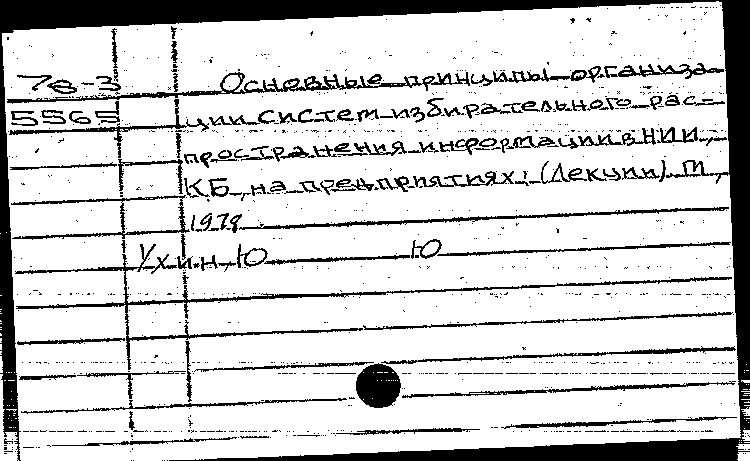 78-3 Основные принципы организа-
5565 ции систем избирательного рас-
пространения информации в НИИ,
КБ, на предприятиях: (Лекции) М,
1978
Ухин, Ю Ю